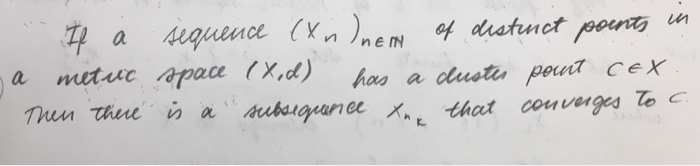 If a sequence (Xn)n∈ℕ of distinct points in
a metric space (X,d) has a cluster point c∈X.
Then there is a subsequence Xnₖ that converges to c.